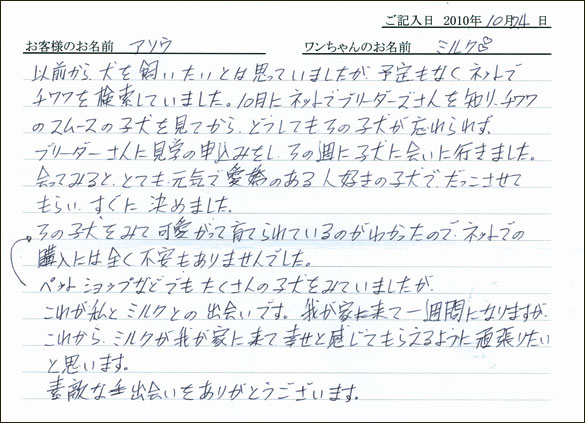 ご記入日 2010年10月24日
お客様のお名前 アソウ ワンちゃんのお名前 ミルク♡
以前から、犬を飼いたいとは思っていましたが、予定もなくネットで
チワワを検索していました。10月にネットでブリーダーズさんを知り、チワワ
のスムースの子犬を見てから、どうしてもその子犬が忘れられず、
ブリーダーさんに見学の申込みをし、その週に子犬に会いに行きました。
会ってみると、とても元気で愛嬌のある人好きの子犬で、だっこさせて
もらい、すぐに決めました。
その子犬をみて可愛がって育てられているのがわかったので、ネットでの
購入には全く不安もありませんでした。
ペットショップなどでもたくさんの子犬をみていましたが、
これが私とミルクとの出会いです。我が家に来て一週間になりますが、
これから、ミルクが我が家に来て幸せと感じてもらえるように頑張りたい
と思います。
素敵な出会いをありがとうございます。